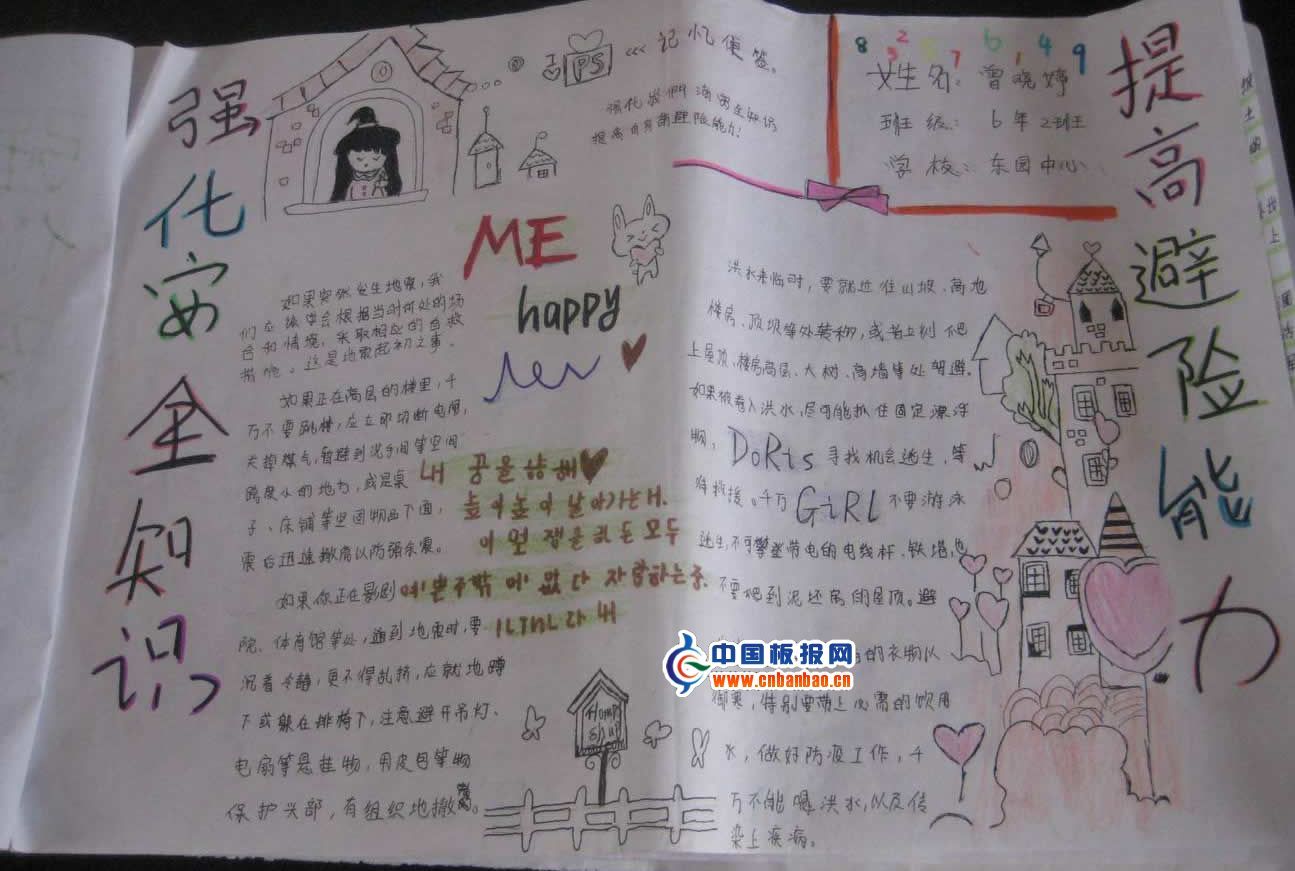 强化安全知识
提高避险能力
PS <<< 记忆便签。
强化我们消安全知识
提高自身的避险能力!
8 2 3 7 6 1 4 9
姓名: 曾晓婷
班级: 6年2班
学校: 东园中心
ME
happy
如果突然发生地震,我
们应该学会根据当时所处的场
合和情境,采取相应的自救
措施。这是地震起初之事。
如果正在高层的楼里,千
万不要跳楼,应立即切断电闸,
关掉煤气,暂避到洗手间等空间
跨度小的地方,或是桌
子、床铺等坚固物品下面,
震后迅速撤离以防强余震。
如果你正在影剧
院、体育馆等处,遇到地震时,要
沉着冷静,更不得乱挤,应就地蹲
下或躲在排椅下,注意避开吊灯、
电扇等悬挂物,用皮包等物
保护头部,有组织地撤离。
내 꿈을 향해
높이높이 날아가는너.
자랑하는
Home
洪水来临时,要就近往山坡、高地
楼房、顶坝等处转移,或者立刻爬
上屋顶、楼房高层、大树、高墙等处暂避。
如果被卷入洪水,尽可能抓住固定漂浮
物, DoRis 寻找机会逃生,等
待救援。千万 GiRL 不要游泳
逃生,不可攀登带电的电线杆、铁塔,也
不要爬到泥坯房的屋顶。避
的衣物以
御寒,特别要带上必需的饮用
水,做好防疫工作,千
万不能喝洪水,以及传
染上疾病。
中国板报网
www.cnbanbao.cn